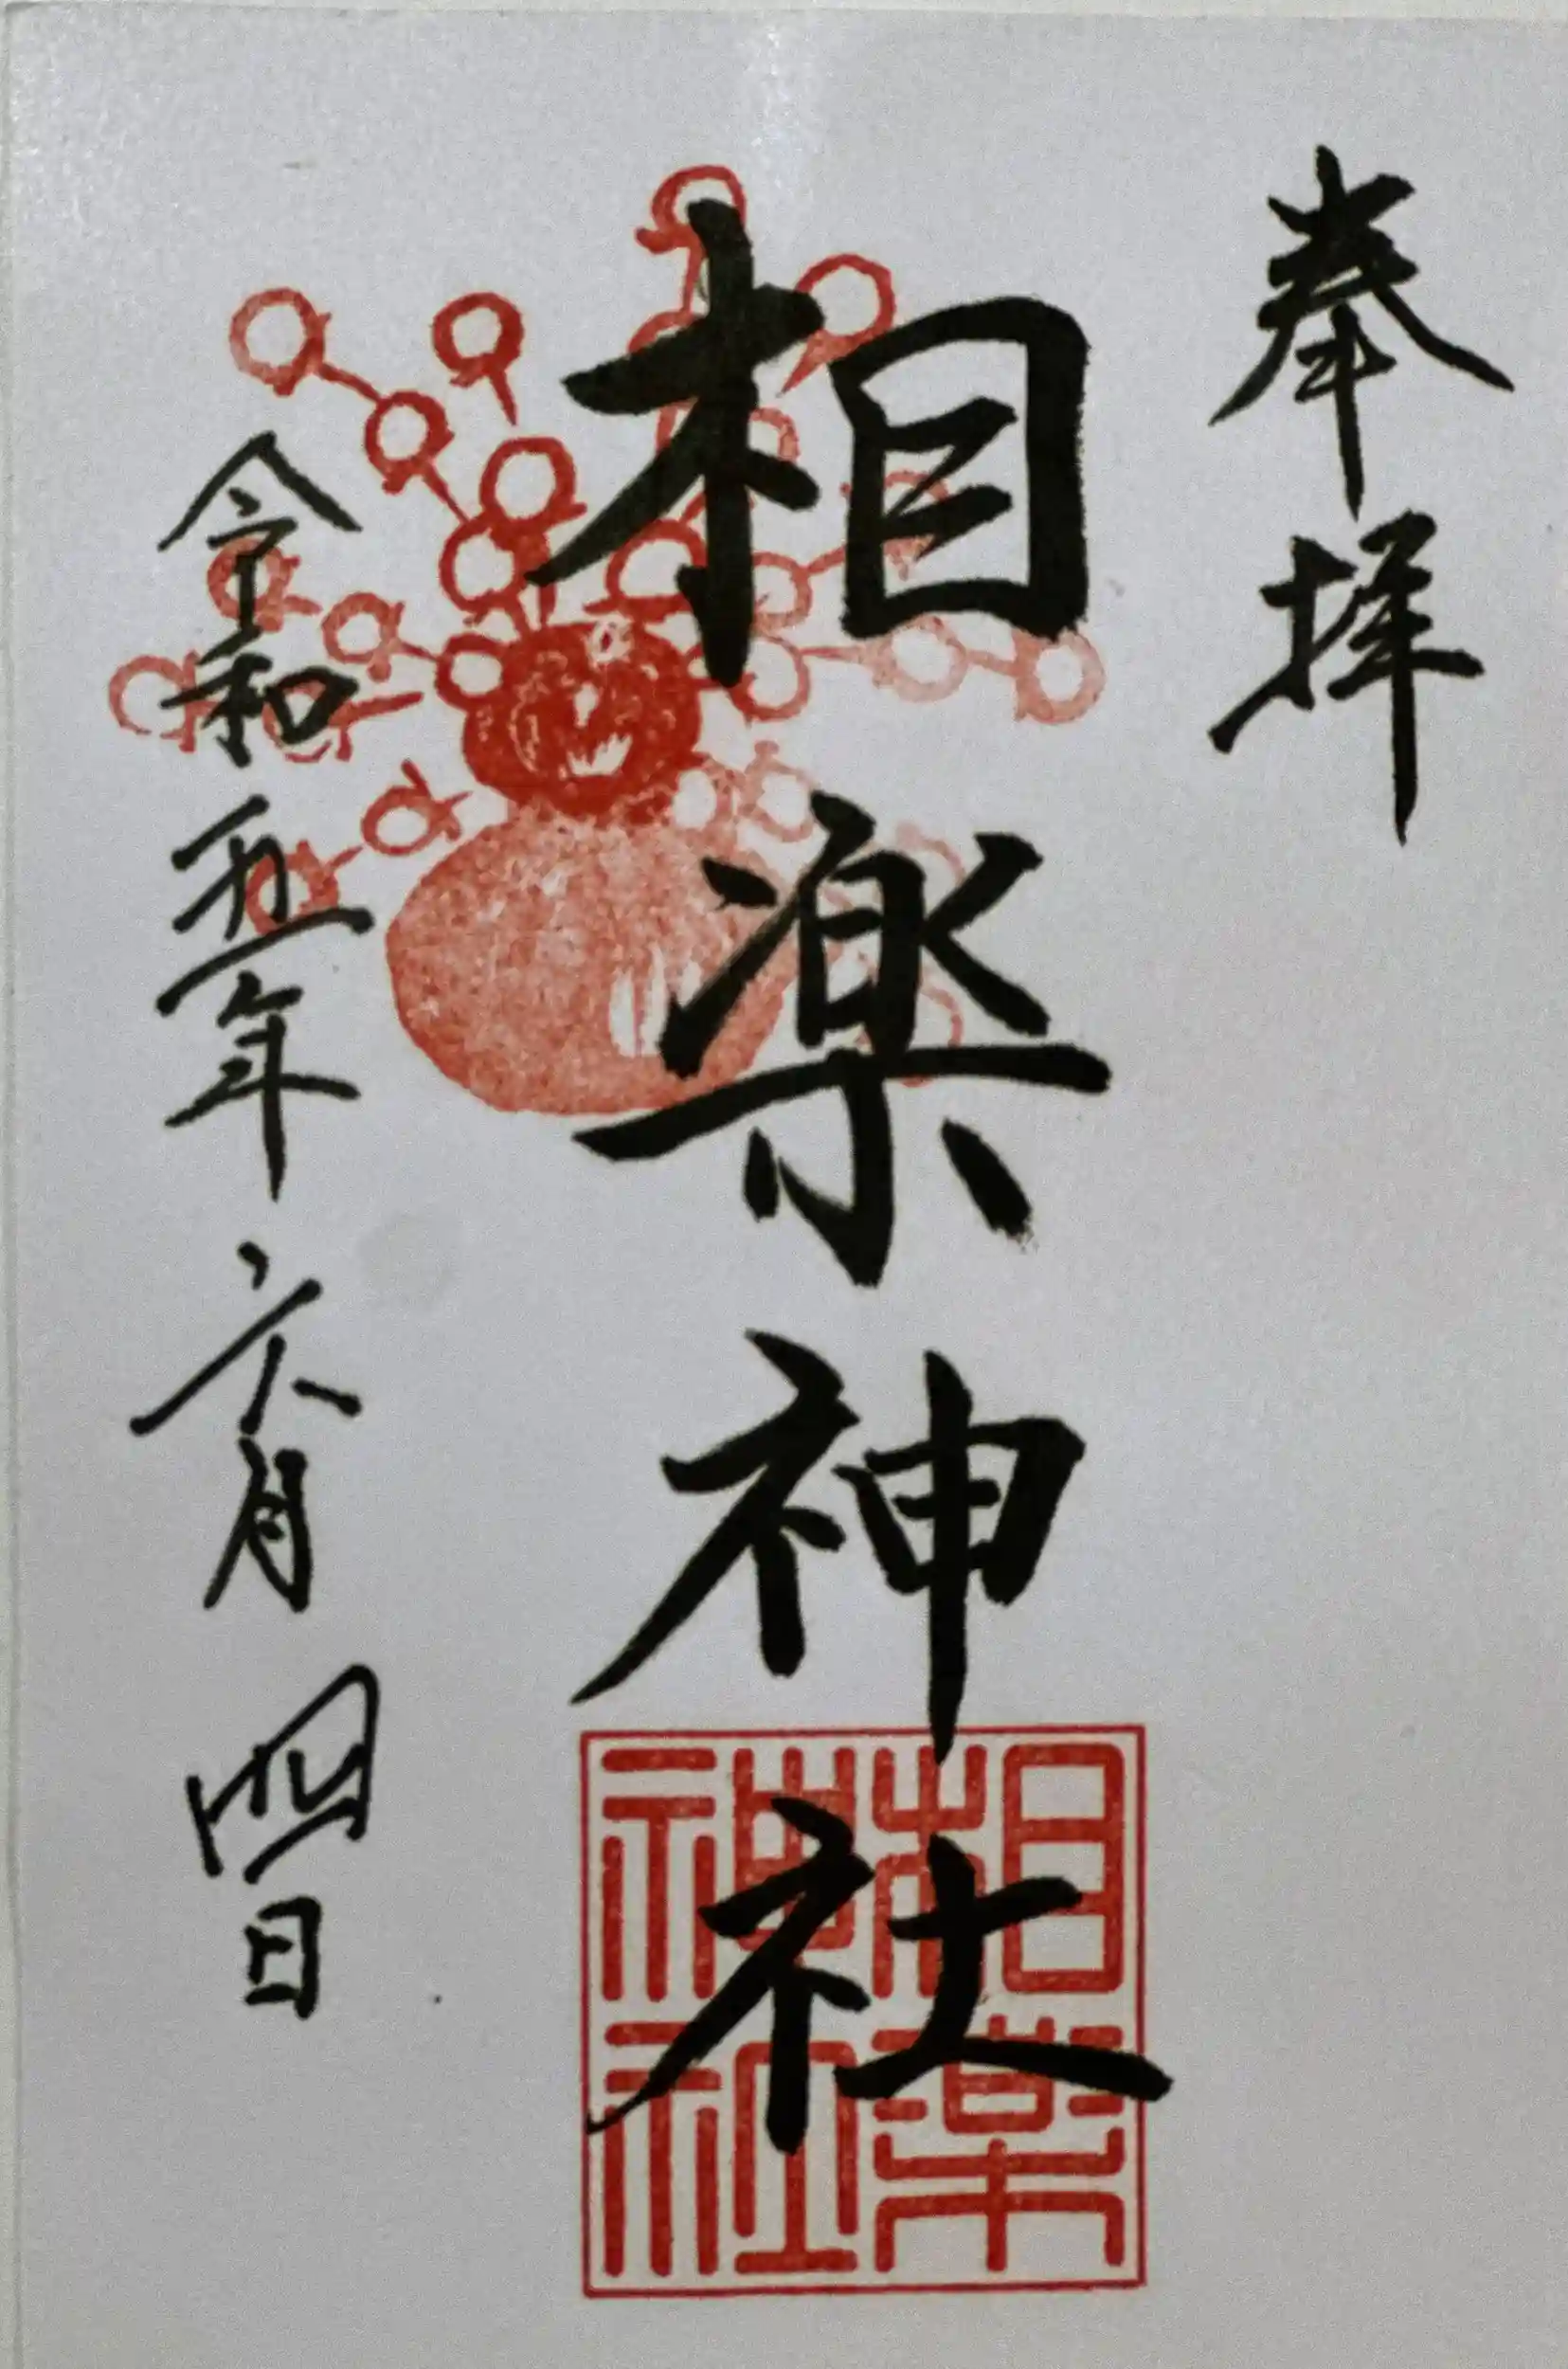 奉拝
相楽神社
相楽神社
令和五年六月四日